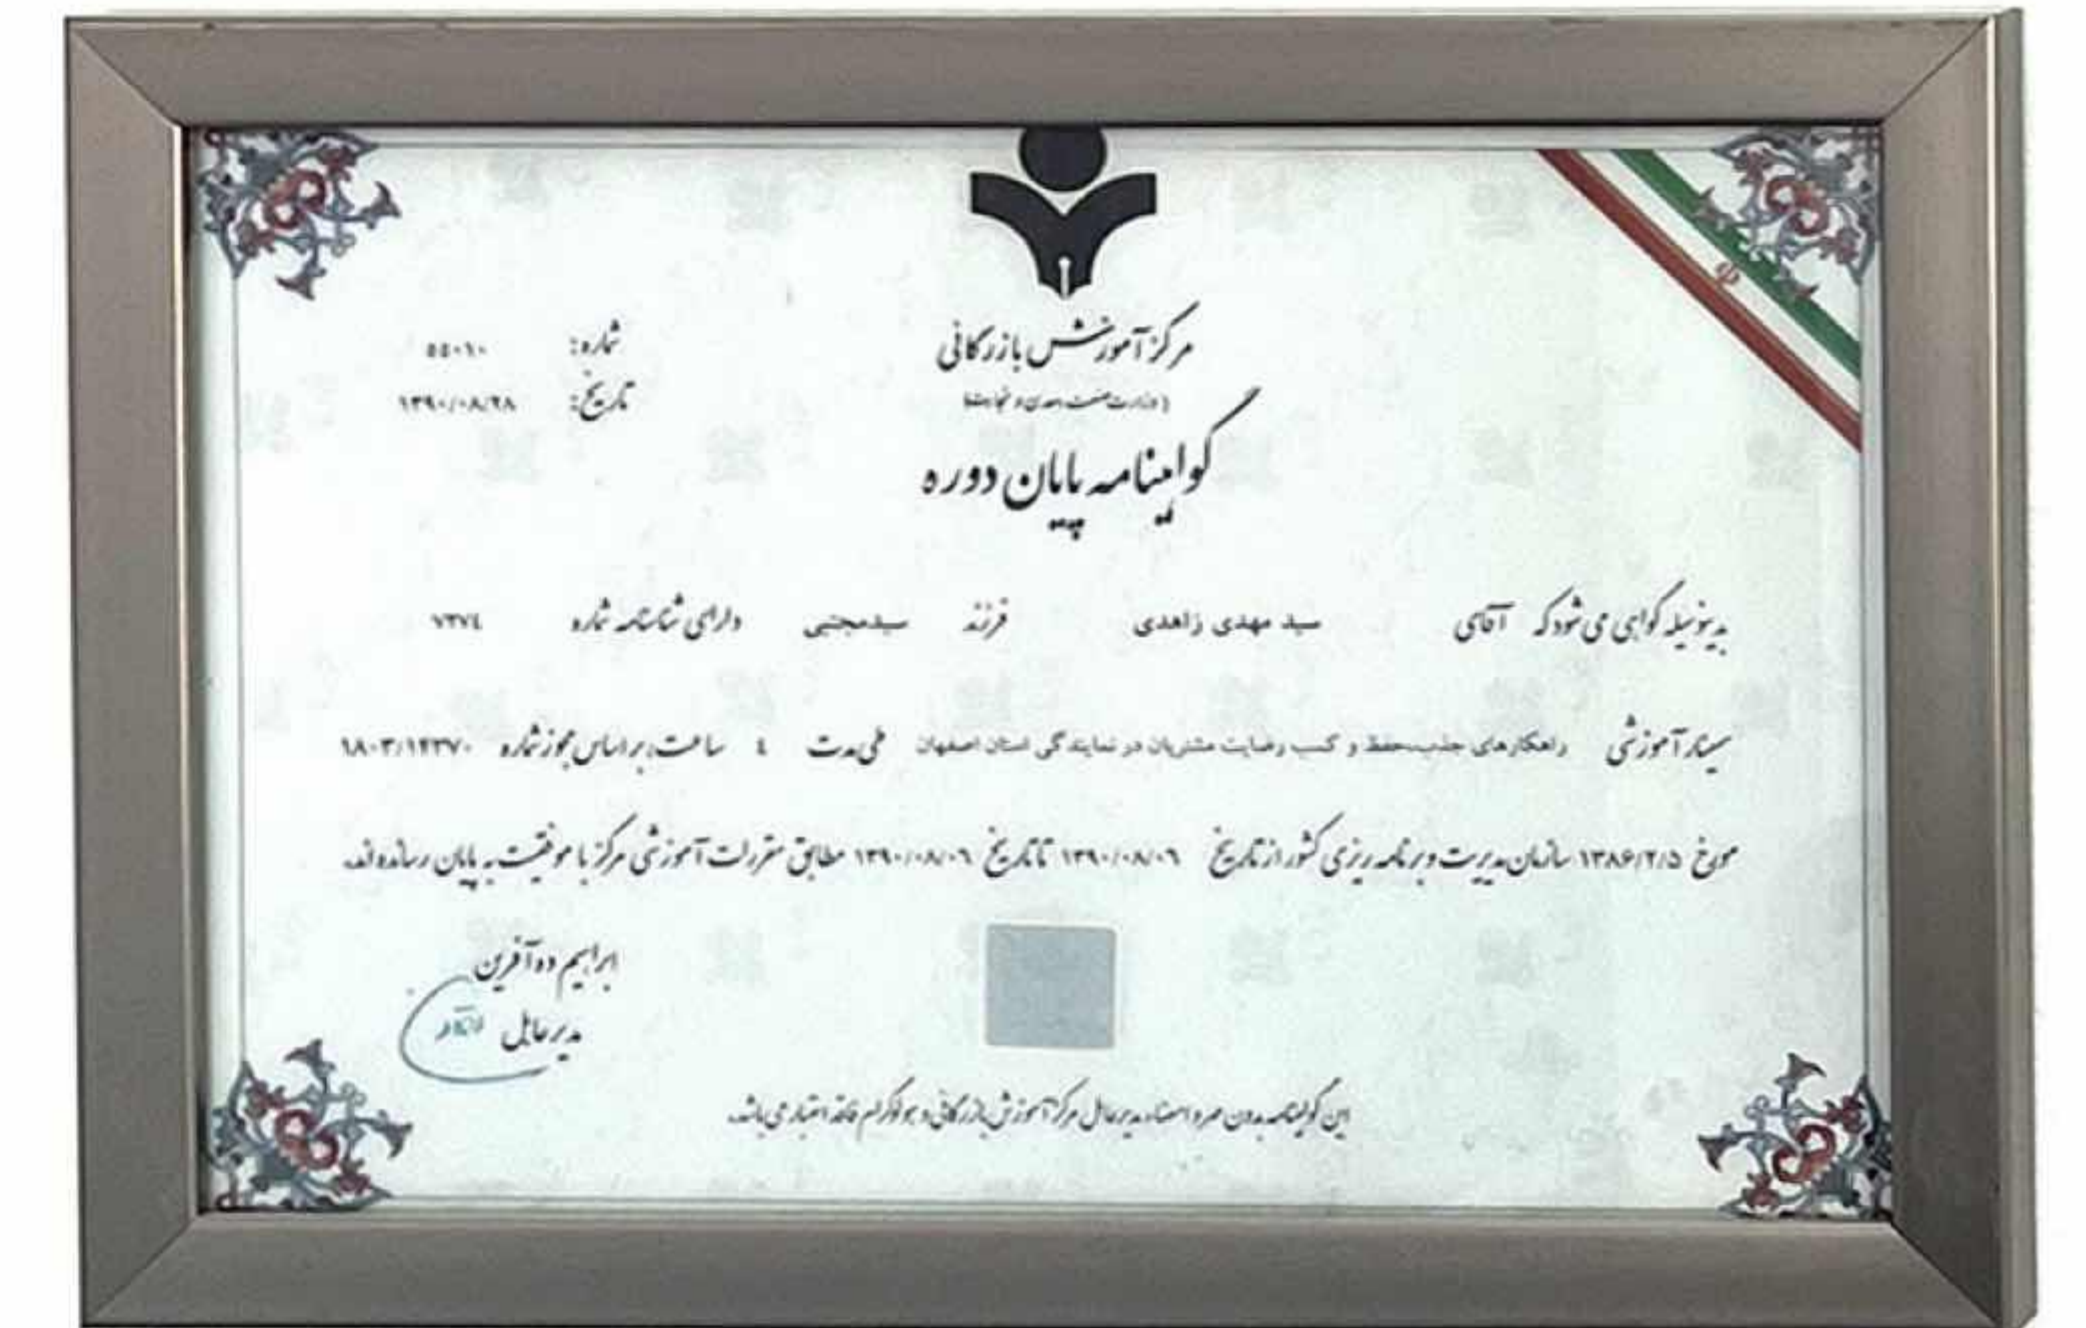 مرکز آموزش بازرگانی
(وزارت صنعت، معدن و تجارت)
شماره: ۵۵۰۶۰
تاریخ: ۱۳۹۰/۰۸/۲۸
گواهینامه پایان دوره
بدینوسیله گواهی می شود که آقای سید مهدی زاهدی فرزند سیدمجتبی دارای شناسنامه شماره ۷۳۷٤
سمینار آموزشی راهکارهای جذب،حفظ و کسب رضایت مشتریان در نمایندگی استان اصفهان طی مدت ٤ ساعت، بر اساس مجوز شماره ۱۸۰۳/۱۴۳۷۰
مورخ ۱۳۸۶/۲/۵ سازمان مدیریت و برنامه ریزی کشور از تاریخ ۱۳۹۰/۰۸/۰۶ تا تاریخ ۱۳۹۰/۰۸/۰۶ مطابق مقررات آموزشی مرکز با موفقیت به پایان رسانده اند.
ابراهیم ده آفرین
مدیر عامل
این گواهینامه بدون مهر و امضاء مدیرعامل مرکز آموزش بازرگانی و هولوگرام فاقد اعتبار می باشد.